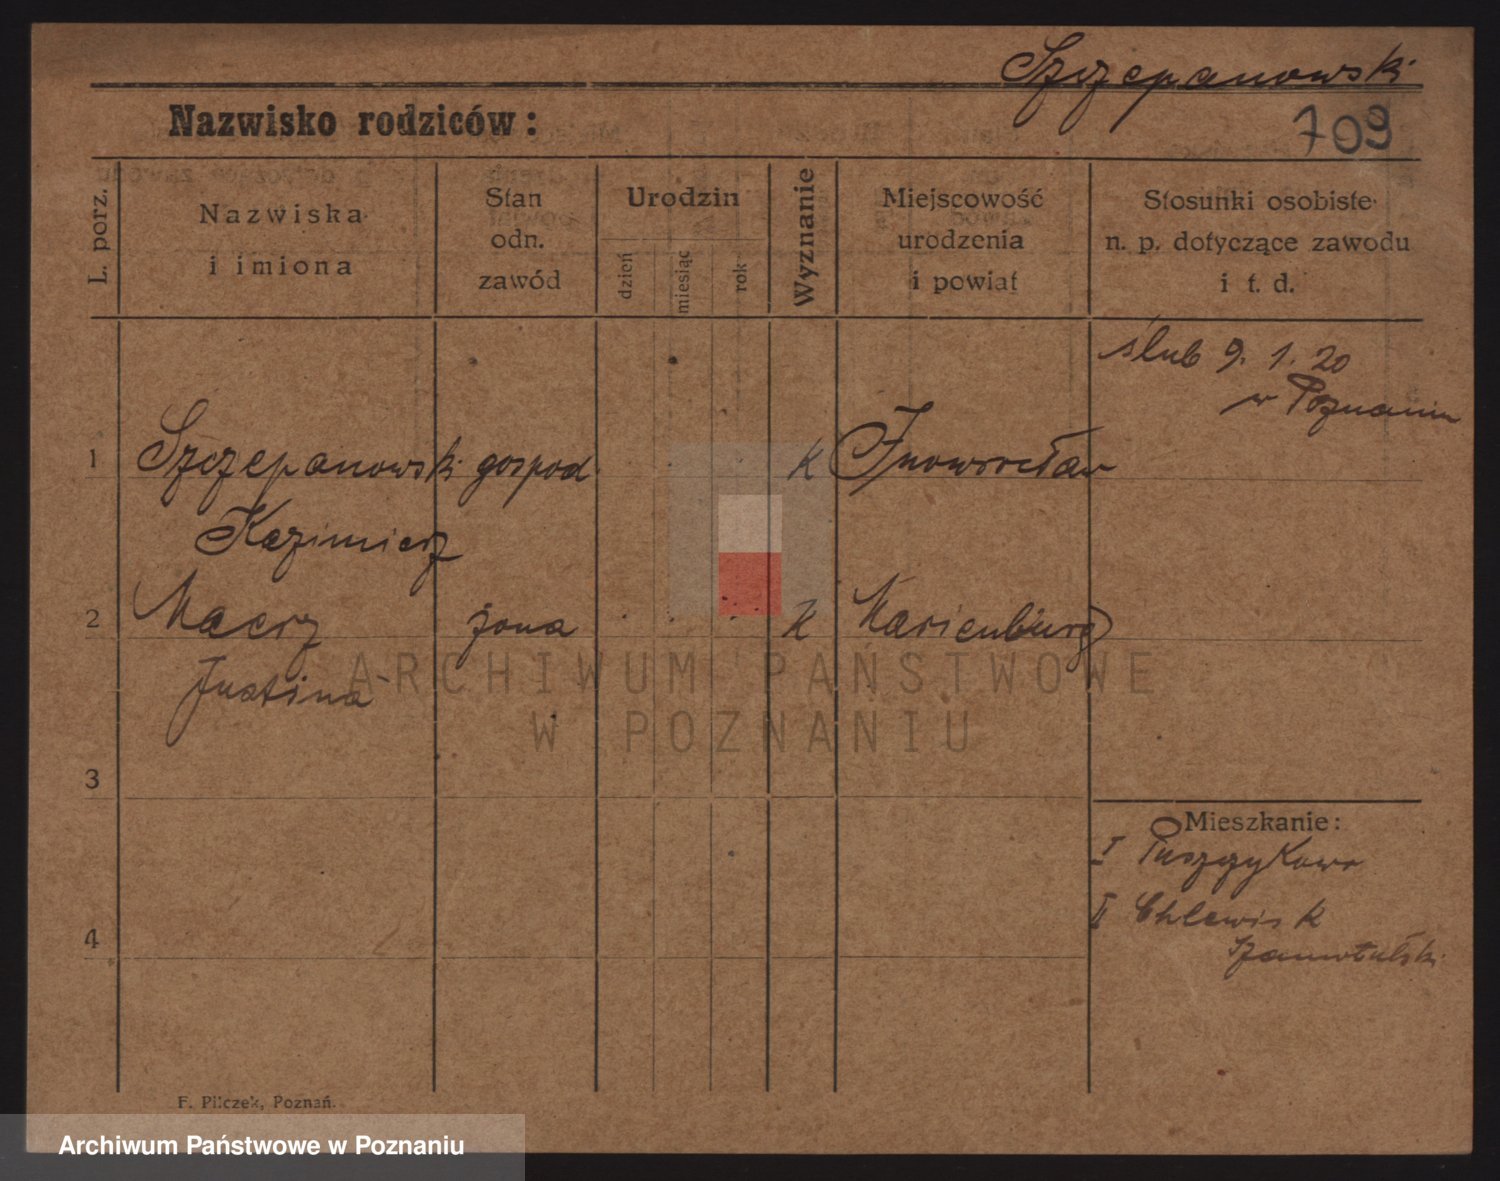 Szczepanowski
Nazwisko rodziców:
709
L. porz.
Nazwiska
i imiona
Stan
odn.
zawód
Urodzin
dzień
miesiąc
rok
Wyznanie
Miejscowość
urodzenia
i powiat
Stosunki osobiste
n. p. dotyczące zawodu
i t. d.
ślub 9. 1. 20
w Poznaniu
1 Szczepanowski gospod K Inowrocław
Kazimierz
2 Macrz żona K Marienburg
Justina
ARCHIWUM PAŃSTWOWE
W POZNANIU
3
Mieszkanie:
I Puszczykowo
II Chlewisk
4
Szamotulski
F. Pilczek, Poznań.
Archiwum Państwowe w Poznaniu